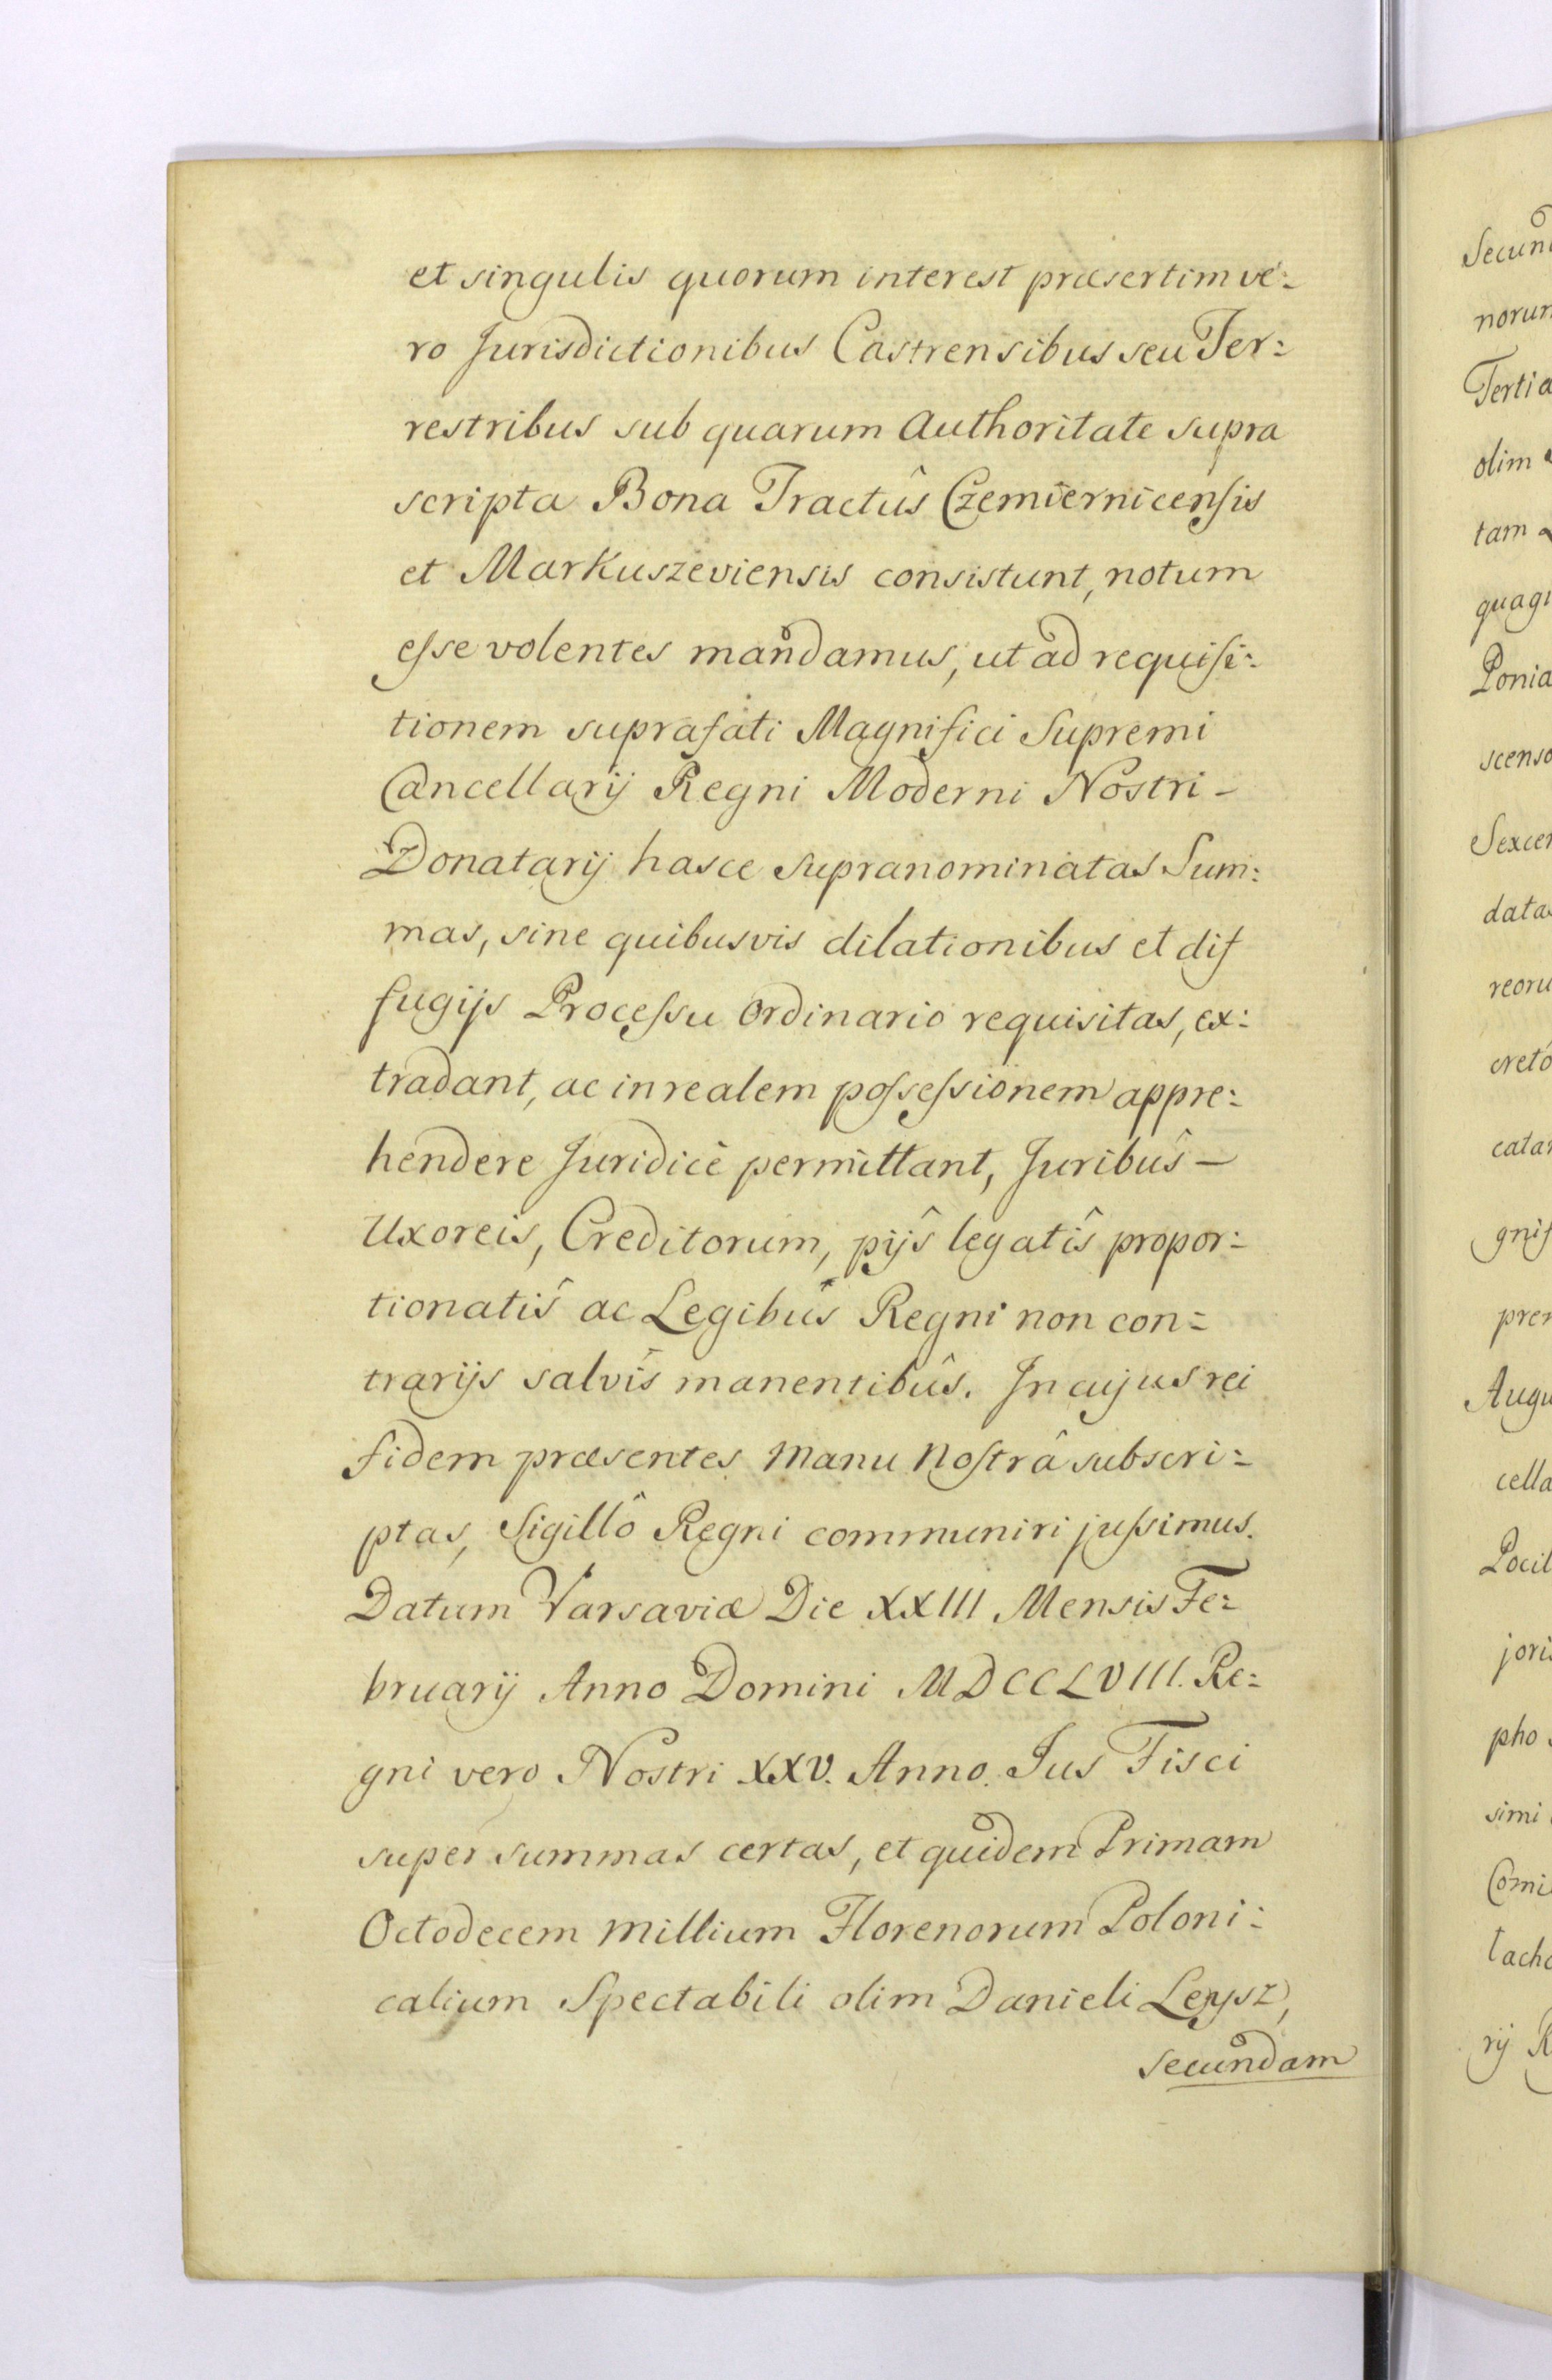 et singulis quorum interest præsertim ve:
ro Jurisdictionibus Castrensibus seu Ter:
restribus sub quarum Authoritate supra
scripta Bona Tractûs Czemiernicensis
et Markuszeviensis consistunt, notum
esse volentes mandamus, ut ad requisi:
tionem suprafati Magnifici Supremi
Cancellarij Regni Moderni Nostri -
Donatarij hasce supranominatas Sum:
mas, sine quibusvis dilationibus et dif
fugijs Processu Ordinario requisitas, ex:
tradant, ac in realem possessionem appre:
hendere Juridicè permittant, Juribûs -
Uxoreis, Creditorum, pijs legatîs propor:
tionatîs ac Legibûs Regni non con:
trarijs salvîs manentibûs. In cujus rei
fidem præsentes Manu Nostrâ subscri:
ptas, Sigillô Regni communiri jussimus.
Datum Varsaviæ Die XXIII Mensis Fe:
bruarij Anno Domini MDCCLVIII. Re:
gni vero Nostri XXV. Anno. Jus Fisci
super summas certas, et quidem Primam
Octodecem Millium Florenorum Poloni:
calium Spectabili olim Danieli Leysz,
secundam
norum
Tertia
olim
tam